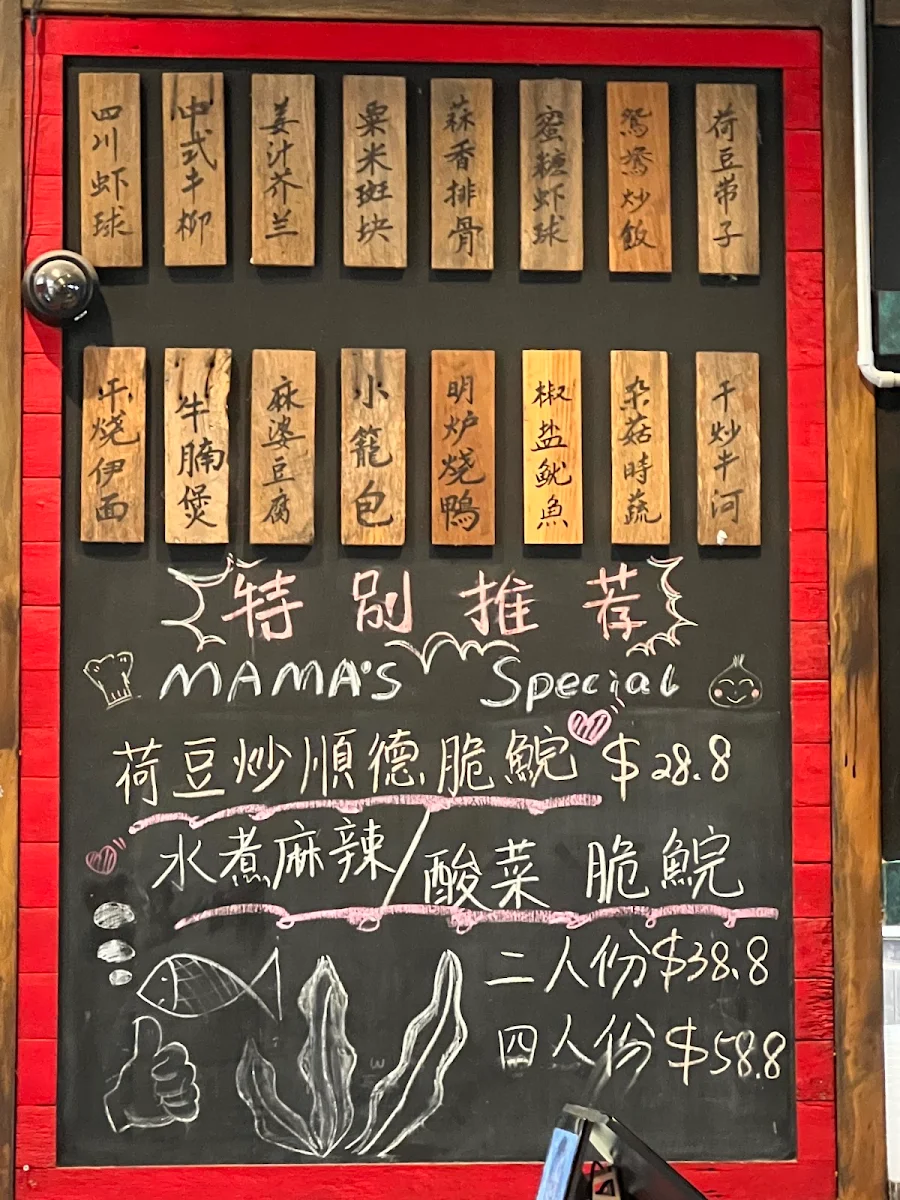 四川虾球
中式牛柳
姜汁芥兰
粟米斑块
蒜香排骨
蜜糖虾球
鸳鸯炒飯
荷豆带子
干烧伊面
牛腩煲
麻婆豆腐
小籠包
明炉烧鴨
椒盐鱿魚
杂菇時蔬
干炒牛河
特別推荐
MAMA'S Special
荷豆炒順德脆鯇 $28.8
水煮麻辣/酸菜 脆鯇
二人份$38.8
四人份 $58.8